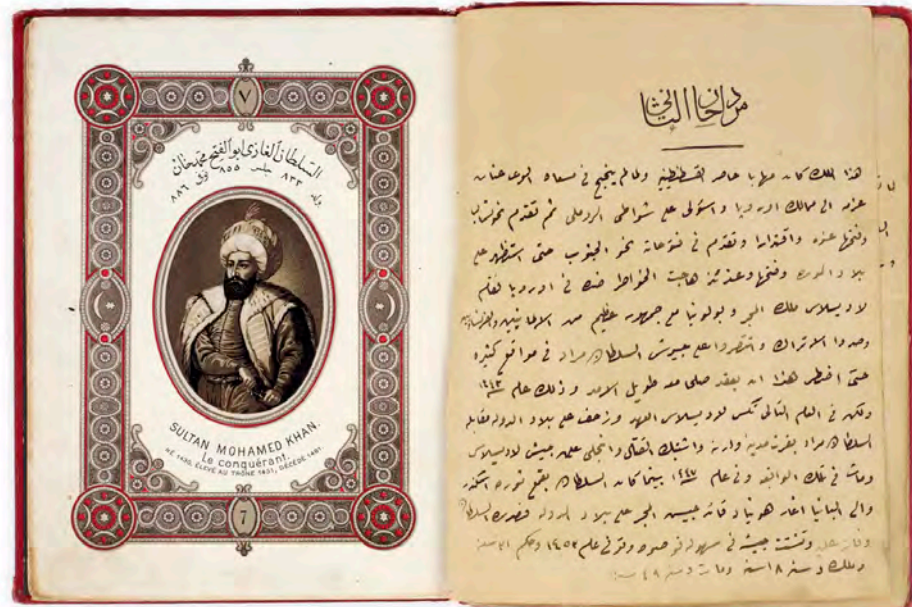 ٧
السلطان الغازى ابو الفتح محمد خان
ولد ٨٣٣ جلس ٨٥٥ توفى ٨٨٦
SULTAN MOHAMED KHAN.
Le conquérant.
NÉ 1430, ÉLEVÉ AU TRÔNE 1451, DÉCÉDÉ 1481.
7
مراد خان الثانى
هذا الملك كان مهابا حاصر القسطنطينية ولما لم ينجح في مسعاه
الى ممالك اوروبا واستولى على شواطى الروملى ثم تقدم نحو
وفتحها عنوة واقتدارا وتقدم في فتوحاته نحو الجنوب حتى استظهر على
بلاد المورة وفتحها وعند ئذ هاجت الخواطر ضده في اوروبا
لاديسلاس ملك المجر وبولونيا مع جمهور عظيم من الالمانيين
وصدوا الاتراك وانتصروا على جيوش السلطان مراد في مواقع كثيرة
حتى اضطر هذا ان يعقد صلحا طويل الامد وذلك عام ١٤٤٣
ولكن في العام التالى نكس لاديسلاس العهد وزحف على بلاد الدولة فقابله
السلطان مراد بقرب مدينة وارنة واشتبك القتال وانجلى عن جيش لاديسلاس
ومات في تلك الواقعة وفي عام ١٤٤٧ بينما كان السلطان يقمع ثورة اسكندر
والى البانيا اغار هونياد قائد جيش المجر على بلاد الدولة السلطان
وتشتت جيشه في سهول قوصوه وتوفى عام ١٤٥٢ وحكم
سنة ومات وسنه ٤٩ سنة